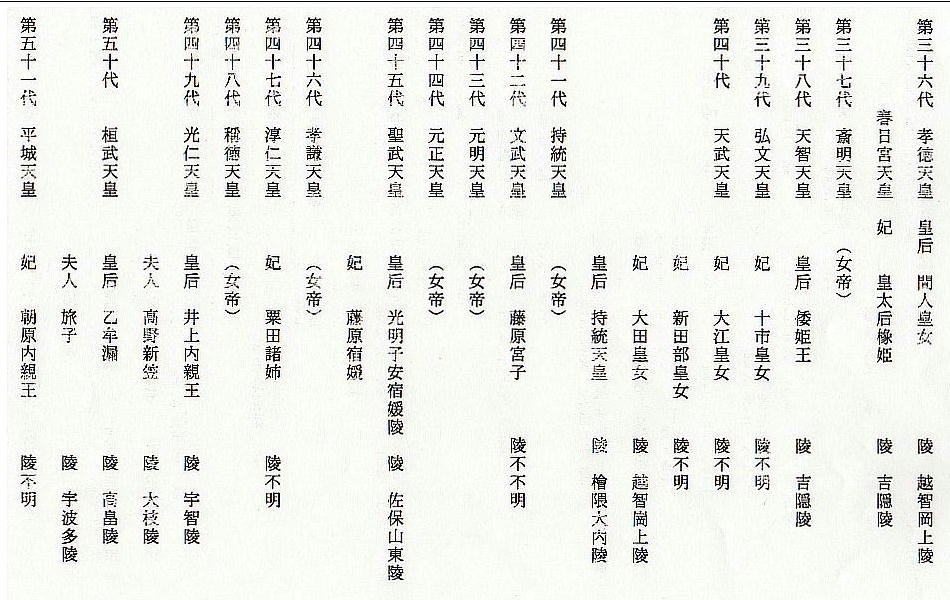 第三十六代 孝徳天皇 皇后 間人皇女 陵 越智岡上陵
春日宮天皇 妃 皇太后橡姫 陵 吉隠陵
第三十七代 斎明天皇 (女帝)
第三十八代 天智天皇 皇后 倭姫王 陵 吉隠陵
第三十九代 弘文天皇 妃 十市皇女 陵不明
第四十代 天武天皇 妃 大江皇女 陵不明
妃 新田部皇女 陵不明
妃 大田皇女 陵 越智崗上陵
皇后 持統天皇 陵 檜隈大内陵
第四十一代 持統天皇 (女帝)
第四十二代 文武天皇 皇后 藤原宮子 陵不不明
第四十三代 元明天皇 (女帝)
第四十四代 元正天皇 (女帝)
第四十五代 聖武天皇 皇后 光明子安宿媛陵 陵 佐保山東陵
妃 藤原宿媛
第四十六代 孝謙天皇 (女帝)
第四十七代 淳仁天皇 妃 粟田諸姉 陵不明
第四十八代 稱徳天皇 (女帝)
第四十九代 光仁天皇 皇后 井上内親王 陵 宇智陵
夫人 高野新笠 陵 大枝陵
第五十代 桓武天皇 皇后 乙牟漏 陵 高畠陵
夫人 旅子 陵 宇波多陵
第五十一代 平城天皇 妃 朝原内親王 陵不明